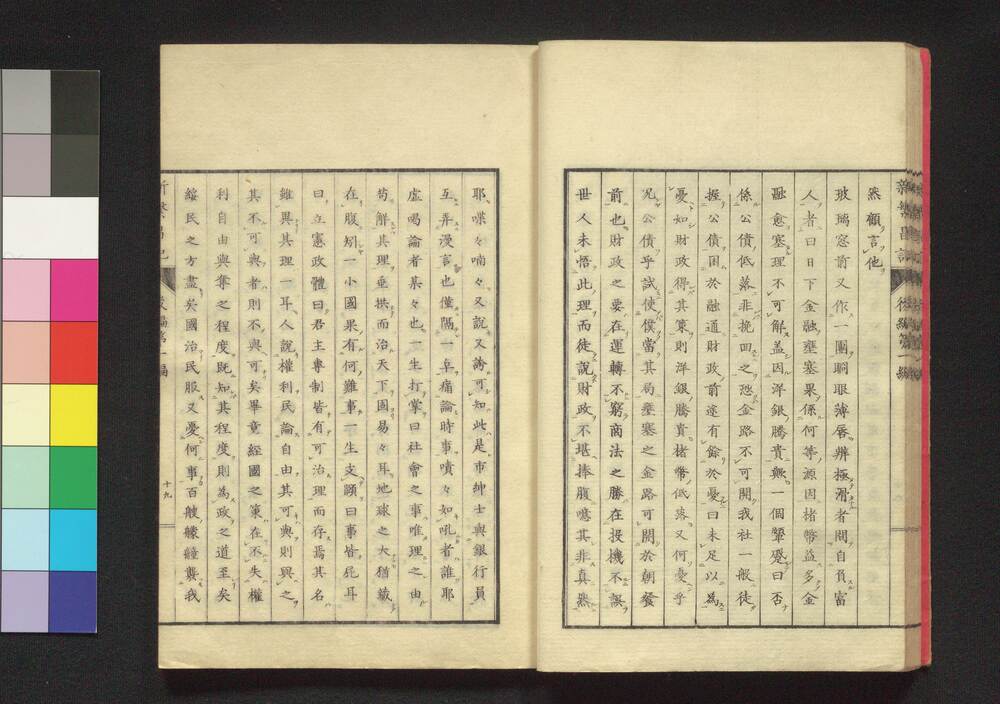 然顧言他
玻璃窓前又作一團眮眼薄唇辨極滑者問自負富
人者曰日下金融壅塞果係何等源因楮幣益多金
融愈塞理不可解蓋因洋銀騰貴歟一個顰蹙曰否
係公債低落非挽回之恐金路不可開我社一般徒
握公債困於融通財政前途有餘於憂曰未足以為
憂如財政得其策則洋銀騰貴楮幣低落又何憂乎
况公債乎試使僕當其局壅塞之金路可開於朝餐
前也財政之要在運轉不窮商法之勝在投機不誤
世人未悟此理而徒說財政不堪捧腹噫其非真然
耶喋々喃々又說又誇可知此是市紳士與銀行員
互弄漫言也僅隔一卓痛論時事噴々如吼者誰耶
虛喝論者某々也一生打掌曰社會之事唯理之由
苟解其理垂拱而治天下固易々耳地球之大猶藏
在腹矧一小國果有何難事一生支頤曰事皆屍耳
曰立憲政體曰君主專制皆有可治理而存焉其名
雖異其理一耳人說權利民論自由其可與則與之
其不可與者則不與可矣畢竟經國之策在不失權
利自由與奪之程度既知其程度則為政之道至矣
綏民之方盡矣國治民服又憂何事百艘艨艟襲我
十九